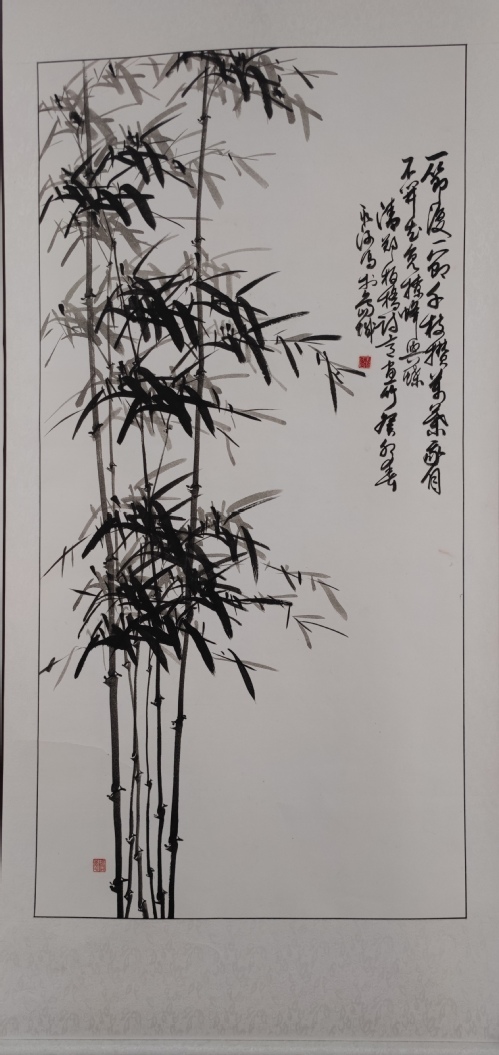 一節復一節千枝攢萬葉我自
不開花免撩蜂與蝶
清鄭板橋詩意画竹癸卯春